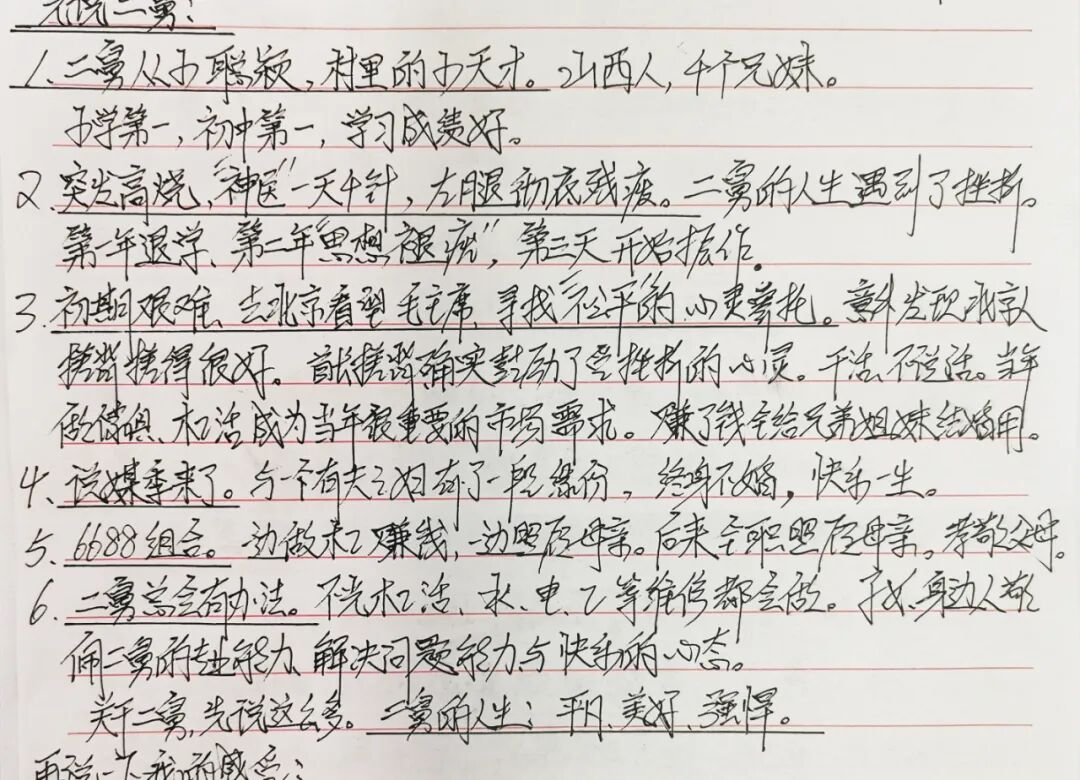 先说二舅：
1、二舅从小聪颖，村里的小天才。山西人，4个兄妹。
小学第一，初中第一，学习成绩好。
2、突发高烧，“神医”一天4针，左腿彻底残疾。二舅的人生遇到了挫折。
第一年退学、第二年“思想褪疣”，第三天开始振作。
3、初期艰难、去北京看望毛主席、寻找“不公平”的心灵寄托。意外发现北京人
搓背搓得很好。首长搓背确实鼓励了受挫折的心灵。干活、不说话。当年
做傢俱、木工活成为当年很重要的市场需求。赚了钱全给兄弟姐妹结婚用。
4、说媒季来了。与一个有夫之妇有了一段缘份，终身不婚，快乐一生。
5、6688组合。一边做木工赚钱，一边照顾母亲。后来全职照顾母亲。孝敬父母。
6、二舅总会有办法。不光木工活、水、电、工等维修都会做。子女、身边人敬
佣二舅的专业能力、解决问题能力与快乐的心态。
关于二舅，先说这么多。二舅的人生：平凡、美好、强悍。
再说一下我的感受：